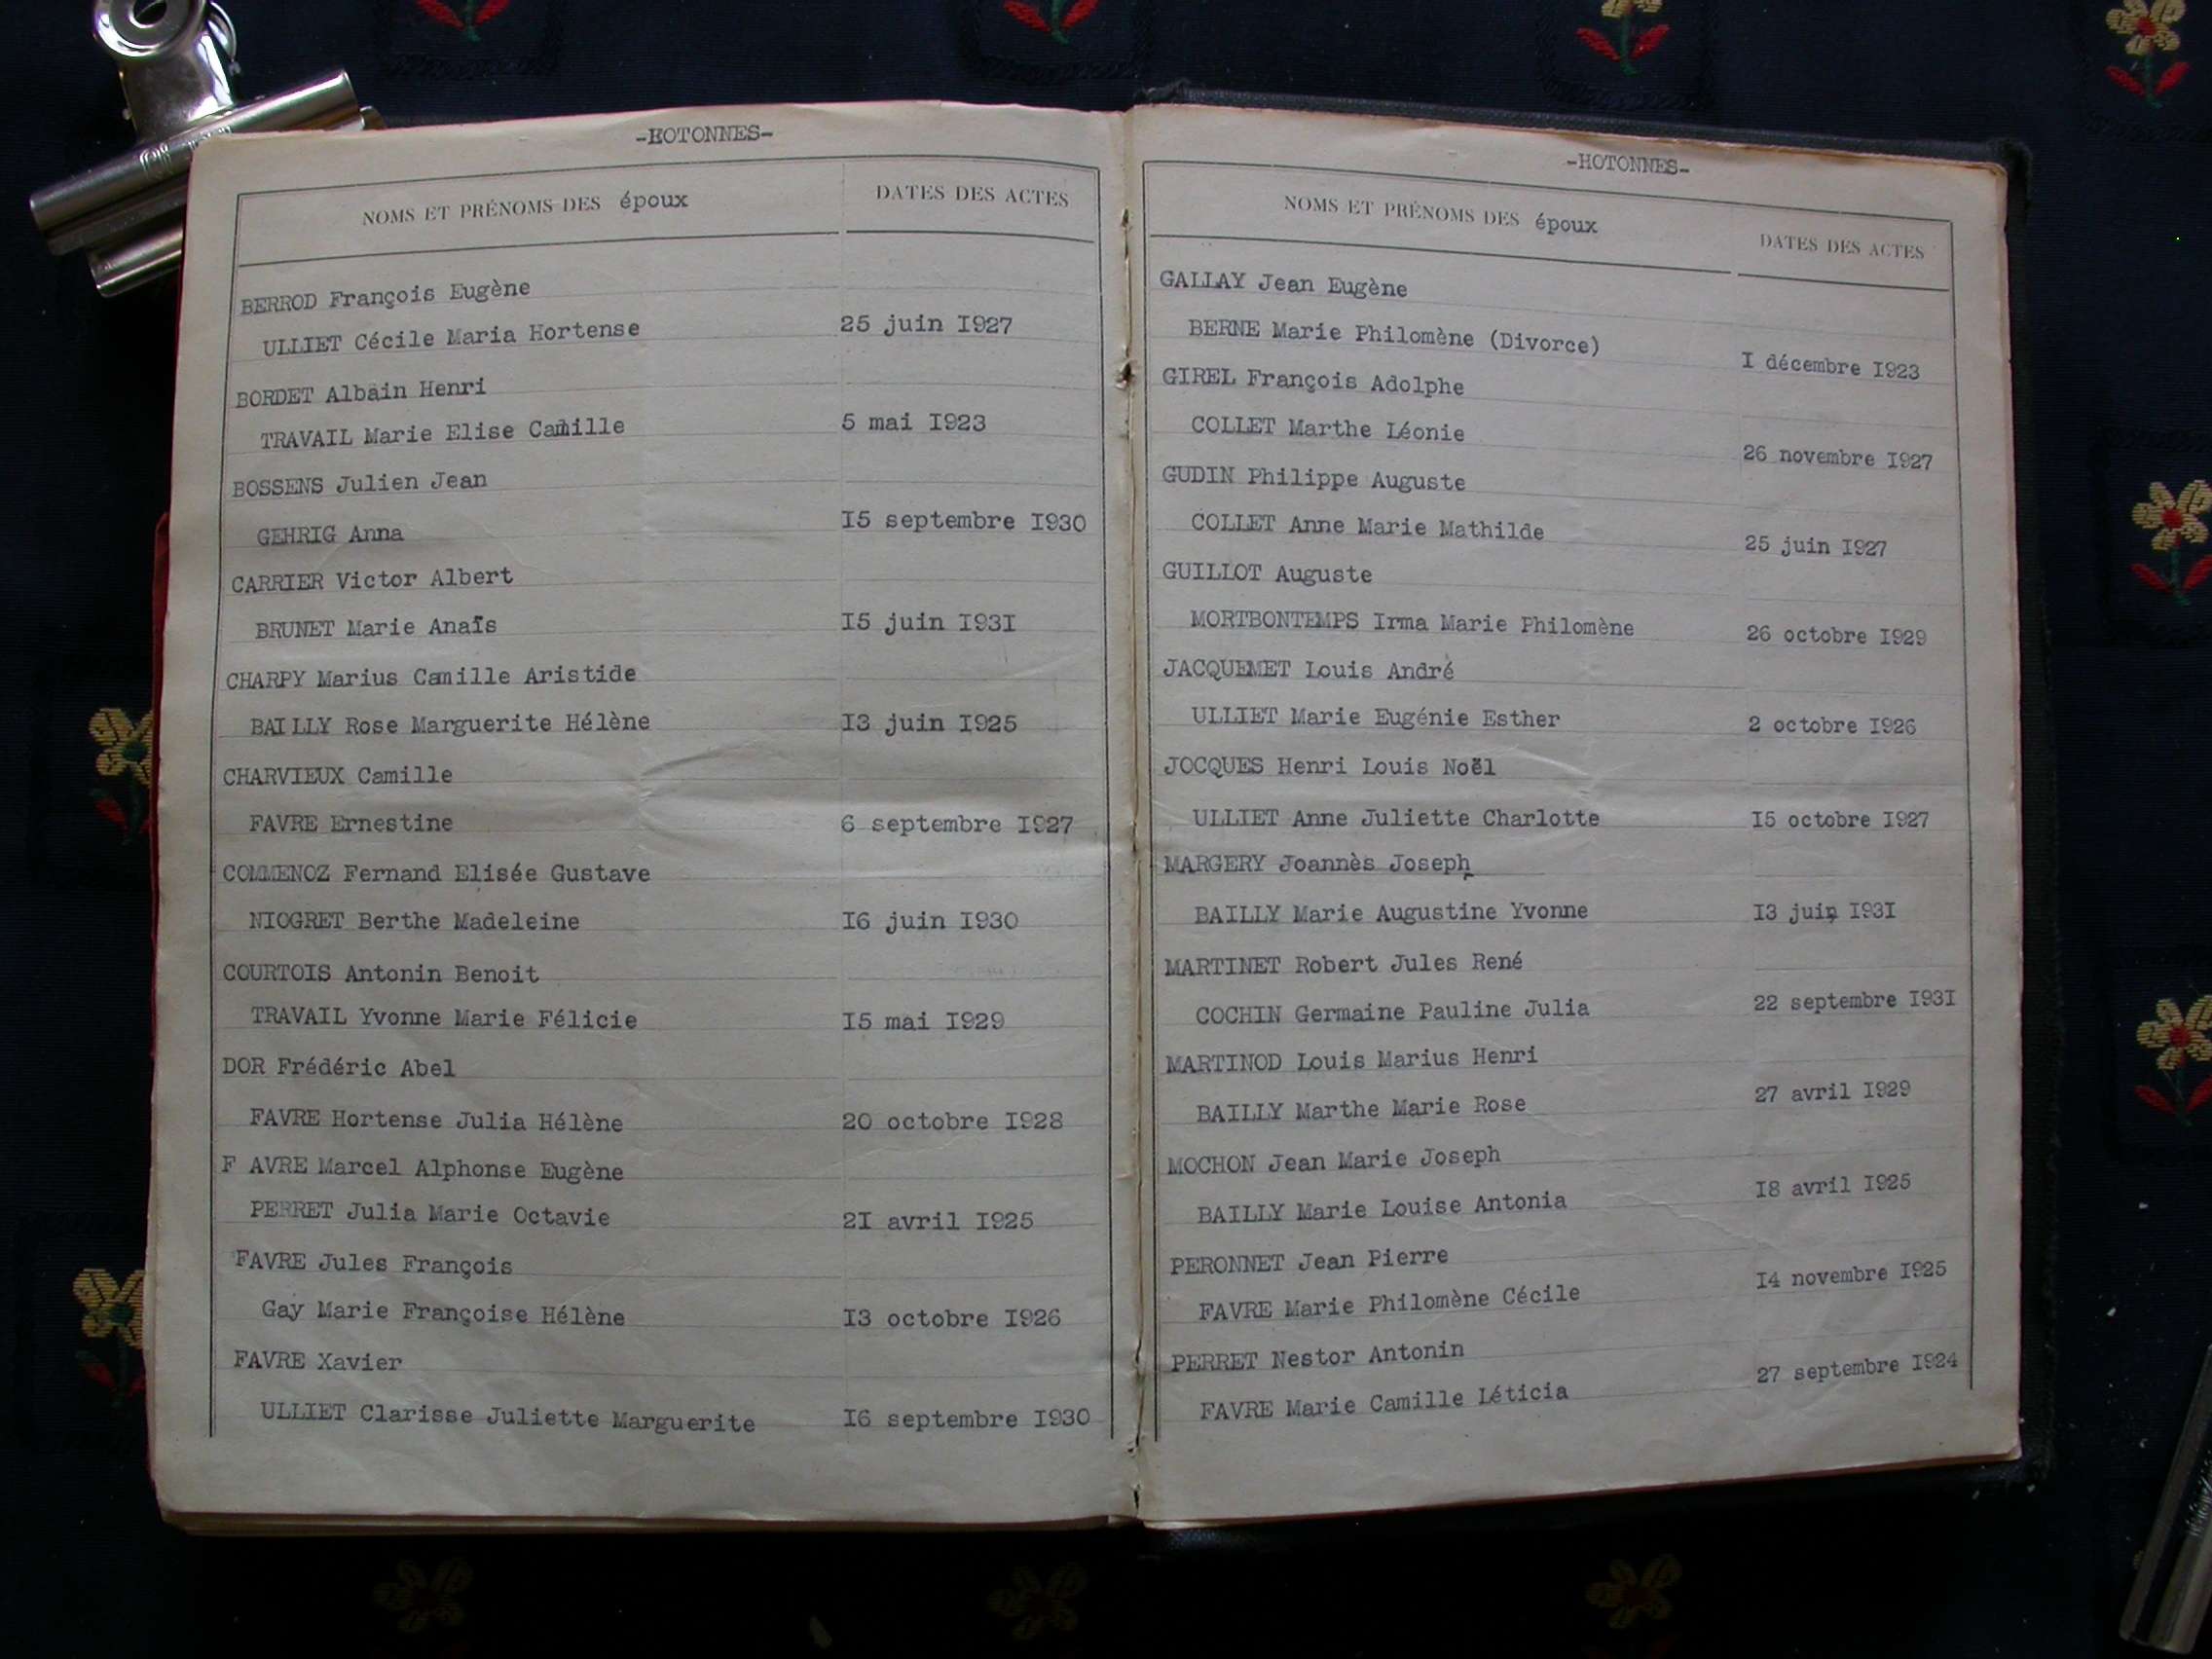 -HOTONNES-
NOMS ET PRÉNOMS DES époux DATES DES ACTES
BERROD François Eugène
ULLIET Cécile Maria Hortense 25 juin I927
BORDET Albain Henri
TRAVAIL Marie Elise Camille 5 mai I923
BOSSENS Julien Jean
GEHRIG Anna I5 septembre I930
CARRIER Victor Albert
BRUNET Marie Anaïs I5 juin I93I
CHARPY Marius Camille Aristide
BAILLY Rose Marguerite Hélène I3 juin I925
CHARVIEUX Camille
FAVRE Ernestine 6 septembre I927
COMMENOZ Fernand Elisée Gustave
NIOGRET Berthe Madeleine I6 juin I930
COURTOIS Antonin Benoit
TRAVAIL Yvonne Marie Félicie I5 mai I929
DOR Frédéric Abel
FAVRE Hortense Julia Hélène 20 octobre I928
F AVRE Marcel Alphonse Eugène
PERRET Julia Marie Octavie 2I avril I925
FAVRE Jules François
Gay Marie Françoise Hélène I3 octobre I926
FAVRE Xavier
ULLIET Clarisse Juliette Marguerite I6 septembre I930
-HOTONNES-
NOMS ET PRÉNOMS DES époux DATES DES ACTES
GALLAY Jean Eugène
BERNE Marie Philomène (Divorce) I décembre I923
GIREL François Adolphe
COLLET Marthe Léonie 26 novembre I927
GUDIN Philippe Auguste
COLLET Anne Marie Mathilde 25 juin I927
GUILLOT Auguste
MORTBONTEMPS Irma Marie Philomène 26 octobre I929
JACQUEMET Louis André
ULLIET Marie Eugénie Esther 2 octobre I926
JOCQUES Henri Louis Noël
ULLIET Anne Juliette Charlotte I5 octobre I927
MARGERY Joannès Joseph
BAILLY Marie Augustine Yvonne I3 juin I93I
MARTINET Robert Jules René
COCHIN Germaine Pauline Julia 22 septembre I93I
MARTINOD Louis Marius Henri
BAILLY Marthe Marie Rose 27 avril I929
MOCHON Jean Marie Joseph
BAILLY Marie Louise Antonia I8 avril I925
PERONNET Jean Pierre
FAVRE Marie Philomène Cécile I4 novembre I925
PERRET Nestor Antonin
FAVRE Marie Camille Léticia 27 septembre I924